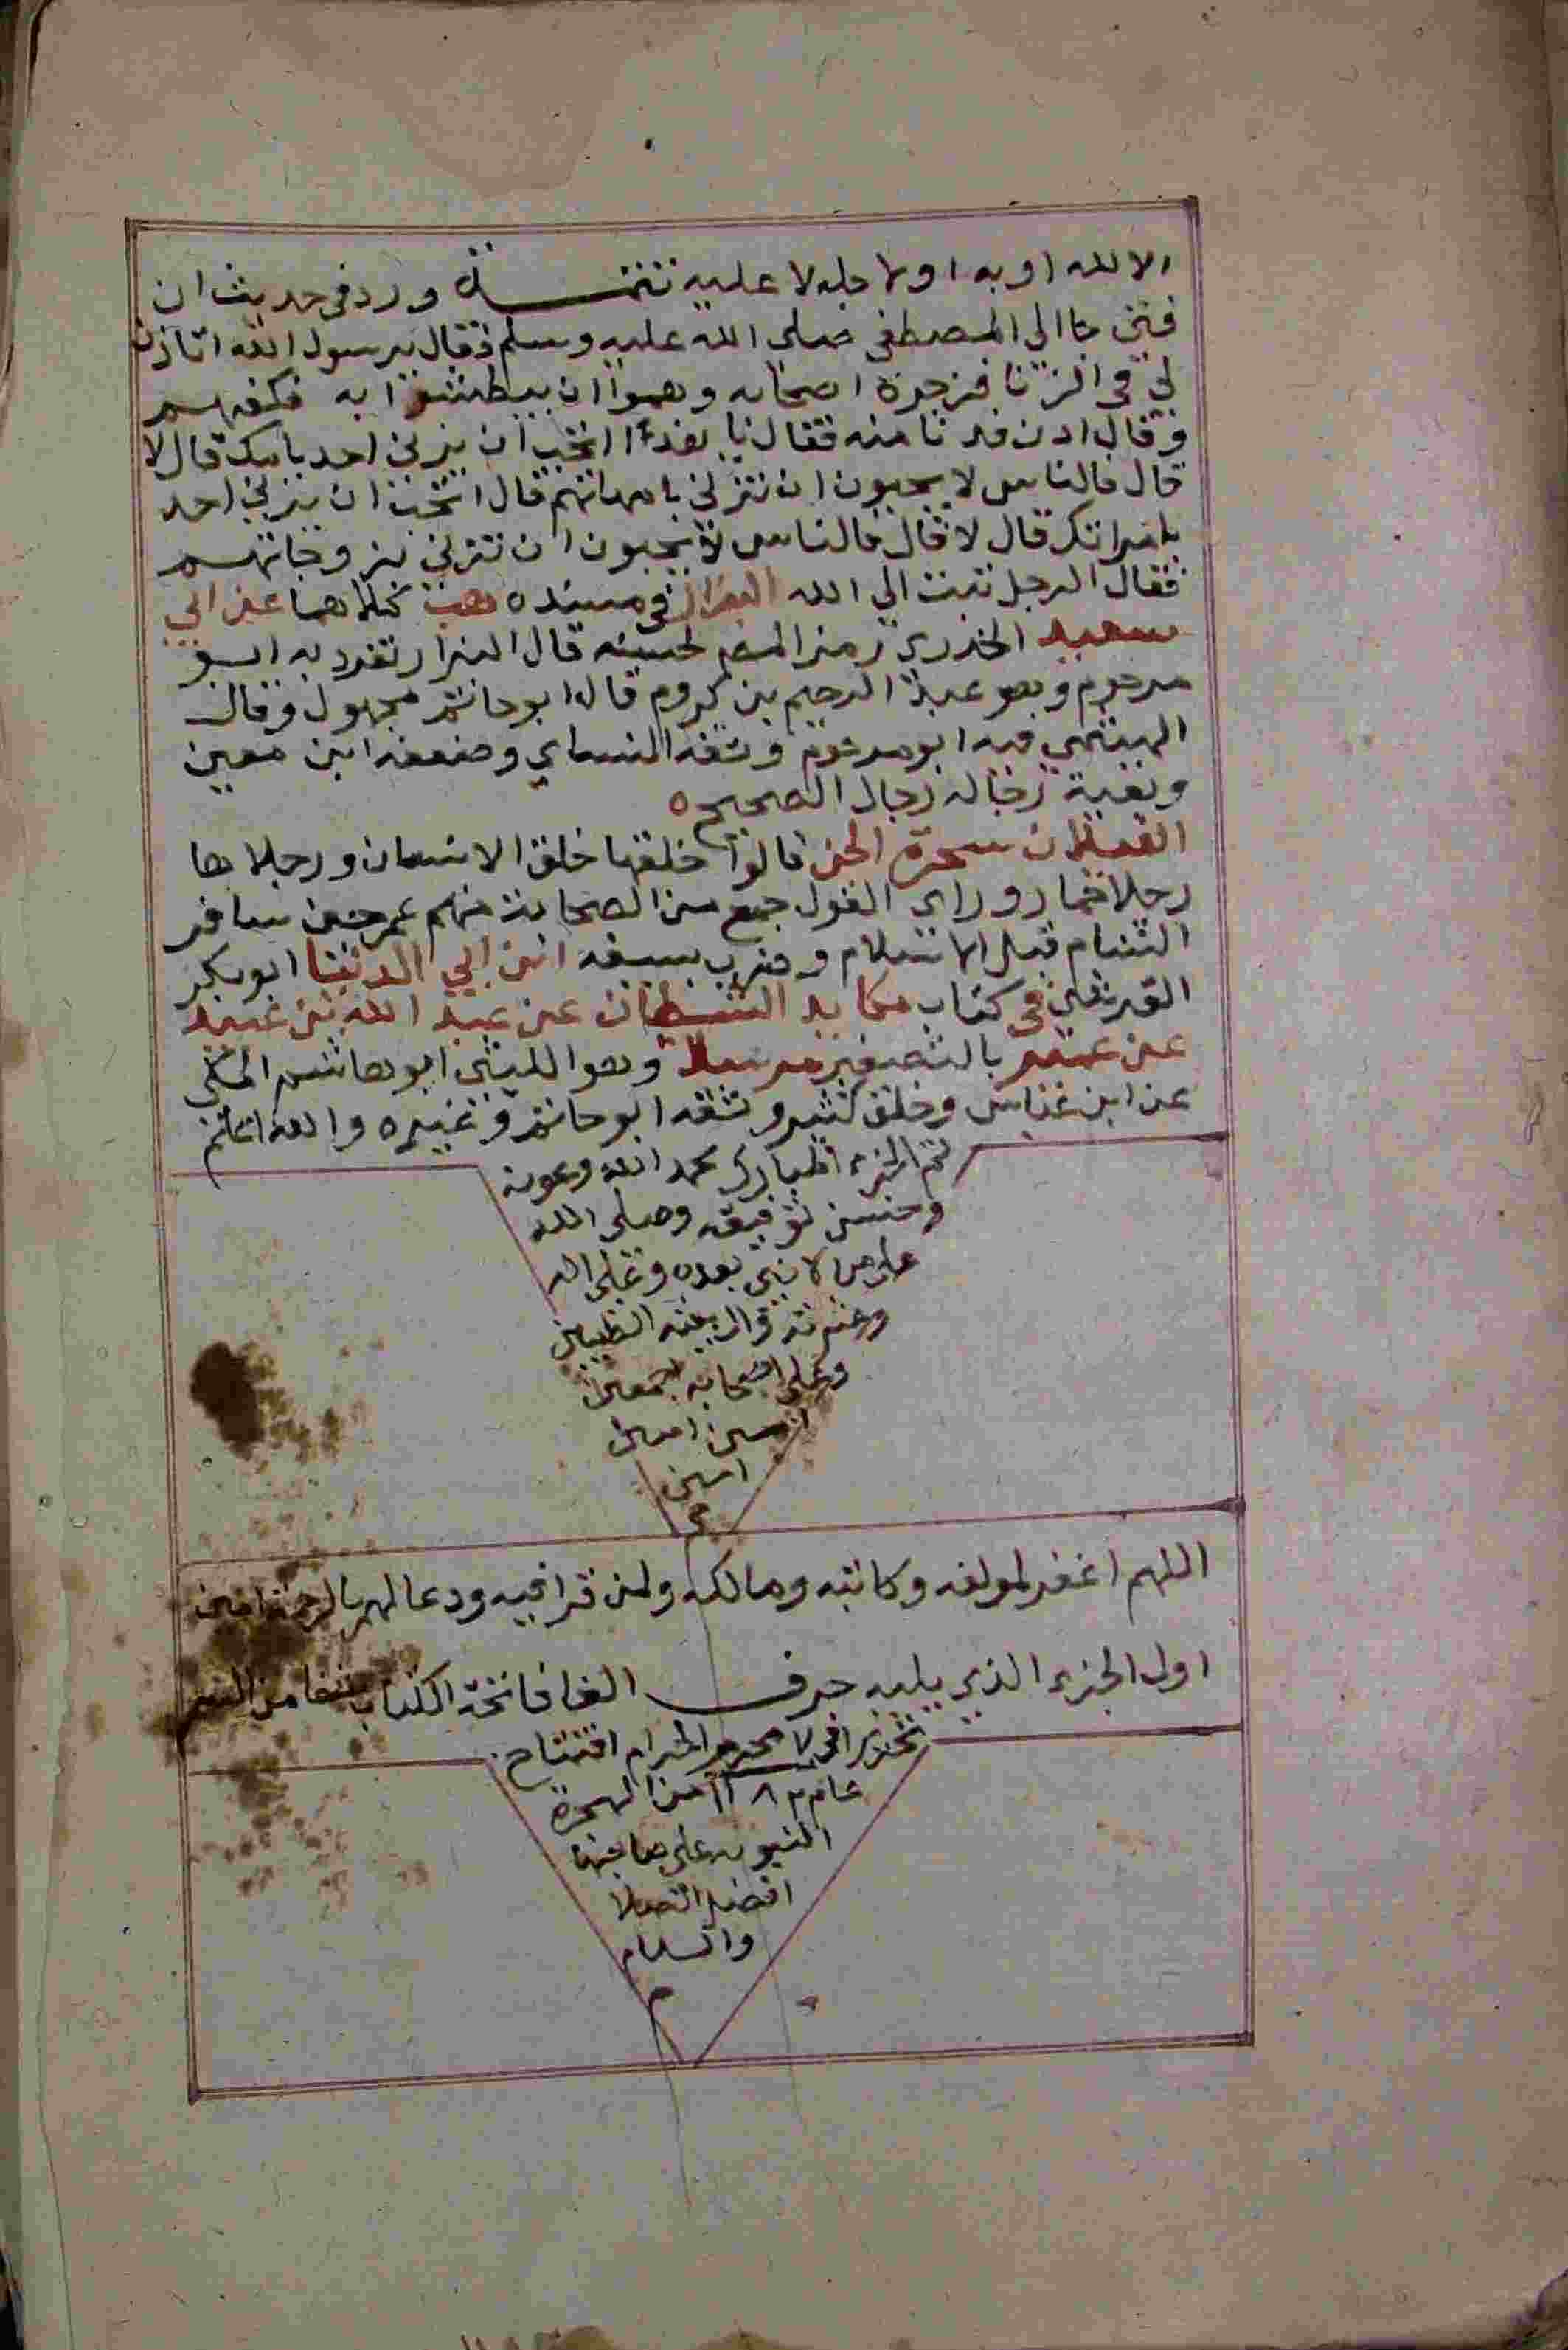 الا لله او به او لاجله لا عليه تتمـــة ورد في حديث ان
فتى جا الى المصطفى صلى الله عليه وسلم فقال يرسول الله اتاذن
لي في الزنا فزجره اصحابه وهموا ان يبطشوا به فكفهم
وقال ادن فدنا منه فقال يا هذا اتحب ان يزني احد بامك قال لا
قال فالناس لا يحبون ان تزني بامهاتهم قال اتحب ان يزني احد
بامراتك قال لا قال فالناس لا يحبون ان تزني بزوجاتهم
فقال الرجل تبت الي الله البزار في مسنده هب كلاهما عن ابي
سعيد الخدري رمز المص لحسنه قال البزار تفرد به ابو
مرحوم وهو عبد الرحيم بن كروم قال ابو حاتم مجهول وقال
الهيثمي فيه ابو مرحوم وثقه النساي وضعفه ابن معين
وبقية رجاله رجال الصحيح ه
الغيلان سحرة الجن قالوا خلقها خلق الانسان ورجلاها
رجلا حمار وراى الغول جمع من الصحابة منهم عمر حين سافر
الشام قبل الاسلام وضرب بسيفه ابن ابي الدنيا ابو بكر
القرشي في كتاب مكايد الشيطان عن عبد الله بن عبيد
عن عمير بالتصغير مرسلا وهو الليثي ابو هاشم المكي
عن ابن عباس وخلق كثير وثقه ابو حاتم وغيره والله اعلم
تم الجزء المبارك بحمد الله وعونه
وحسن توفيقه وصلى الله
على من لا نبي بعده وعلى اله
وعترته الطيبين
وعلى اصحابه اجمعين
امين امين
امين
م
اللهم اغفر لمولفه وكاتبه ومالكه ولمن قرا فيه ودعا لهم بالرحمة امين
اول الجزء الذي يليه حرف الفا فاتحة الكتاب شفا من السم
تحريرا في ٧ محرم الحرام افتتاح
عام ١١٨٣ من الهجرة
النبويه على صاحبها
افضل الصلا
والسلام
م